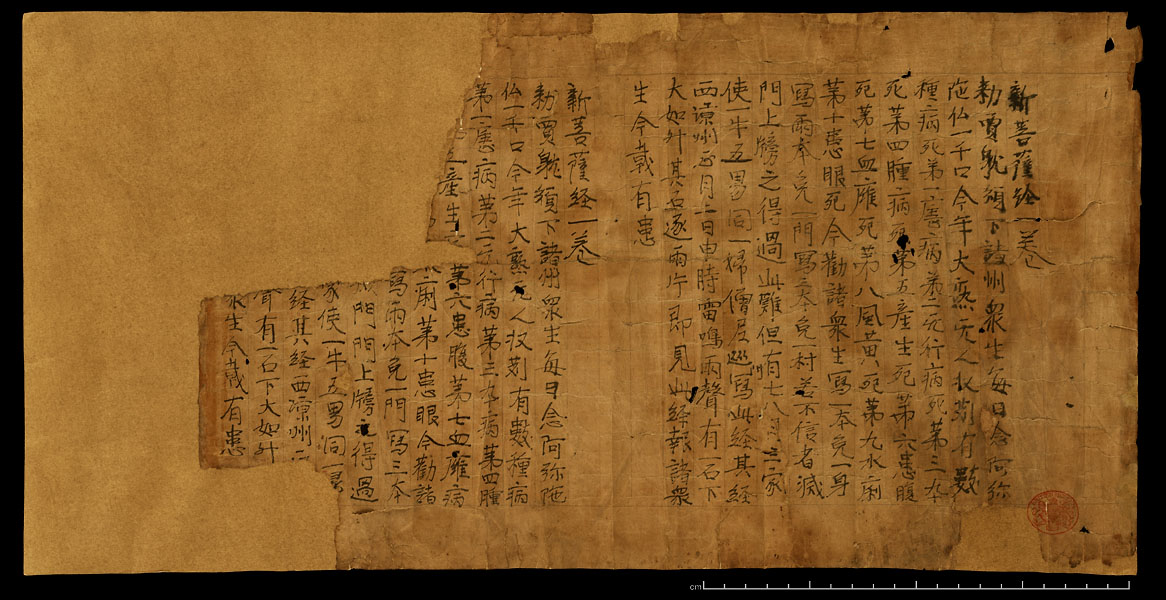 新菩薩経一卷
勑賈躭頒下諸州衆生每日念阿弥
陁仏一千口今年大熟无人收刈有數
種病死第一瘧病第二天行病死第三卒
死第四腫病死第五產生死第六患腹
死第七血癕死第八風黃死第九水痢
第十患眼死今勸諸衆生寫一本免一身
寫兩本免一門寫三本免一村若不信者滅
門上牓之得過此難但有七八月三家
使一牛五男同一婦僧尼巡寫此經其經
西涼州正月二日申時雷鳴雨聲有一石下
大如升其石遂兩片即見此經報諸衆
生今載有患
新菩薩経一卷
勑賈躭頒下諸州衆生每日念阿弥陁
仏一千口今年大熟无人収刈有數種病
第一瘧病第二天行病第三卒病第四腫
產生
第六患腹第七血癕病
痢第十患眼今勸諸
寫兩本免一門寫三本
門門上牓之得過
家使一牛五男同一
経其経西涼州二
有一石下大如升
生今載有患